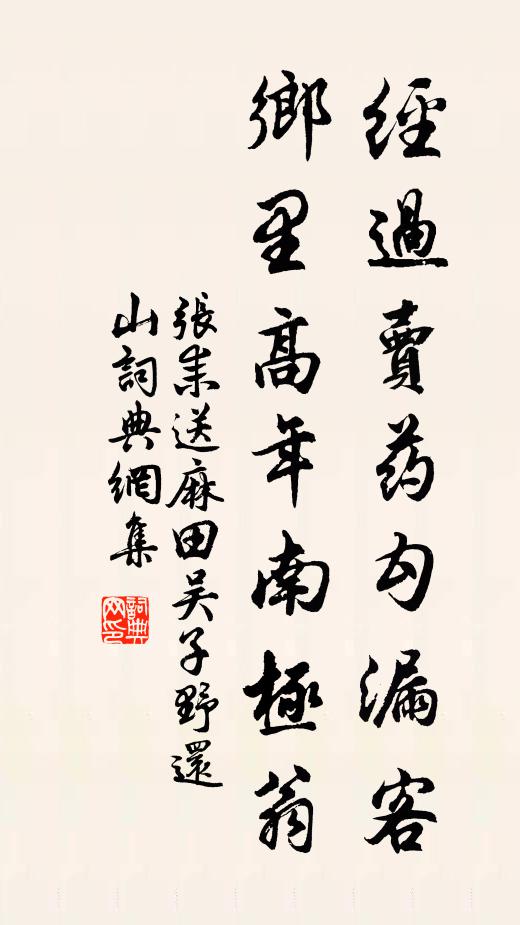 經過賣药勾漏客
鄉里高年南極翁
張耒送麻田吴子野還
山詞典網集
詞典
网印